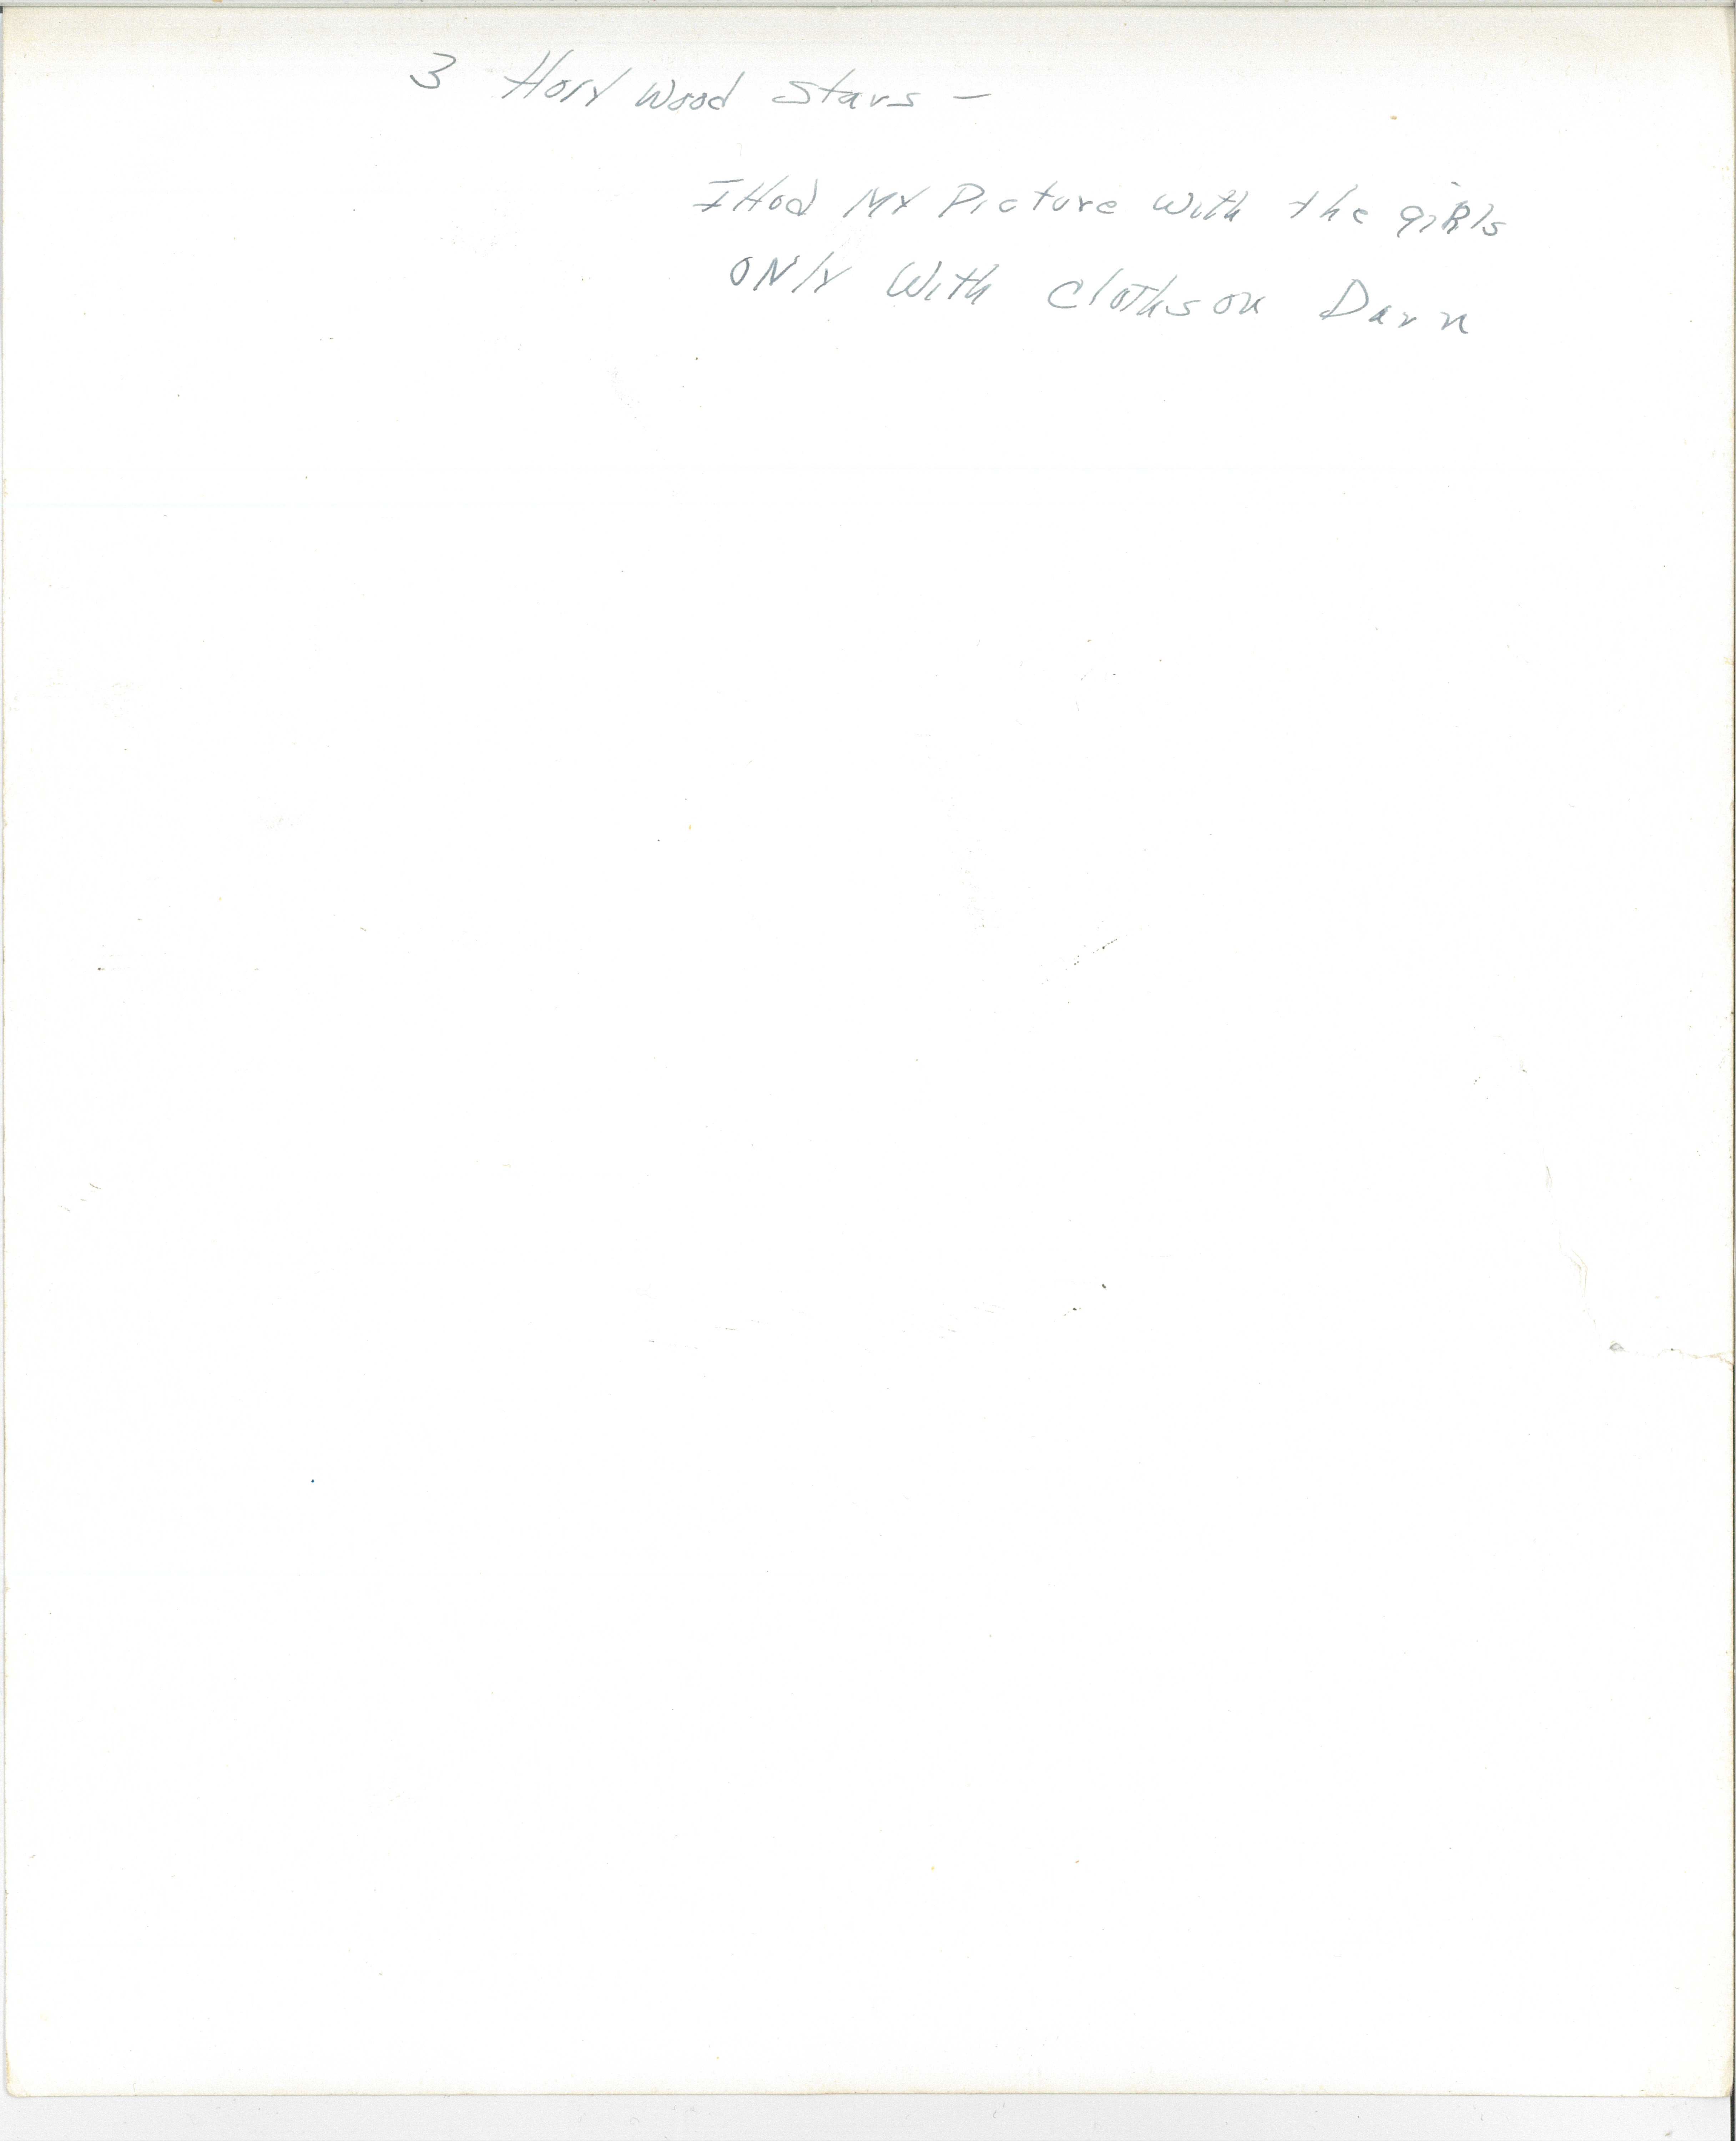 3 Holy Wood Stars -
I Had My Picture With the giRls
ONly With Cloths on Darn